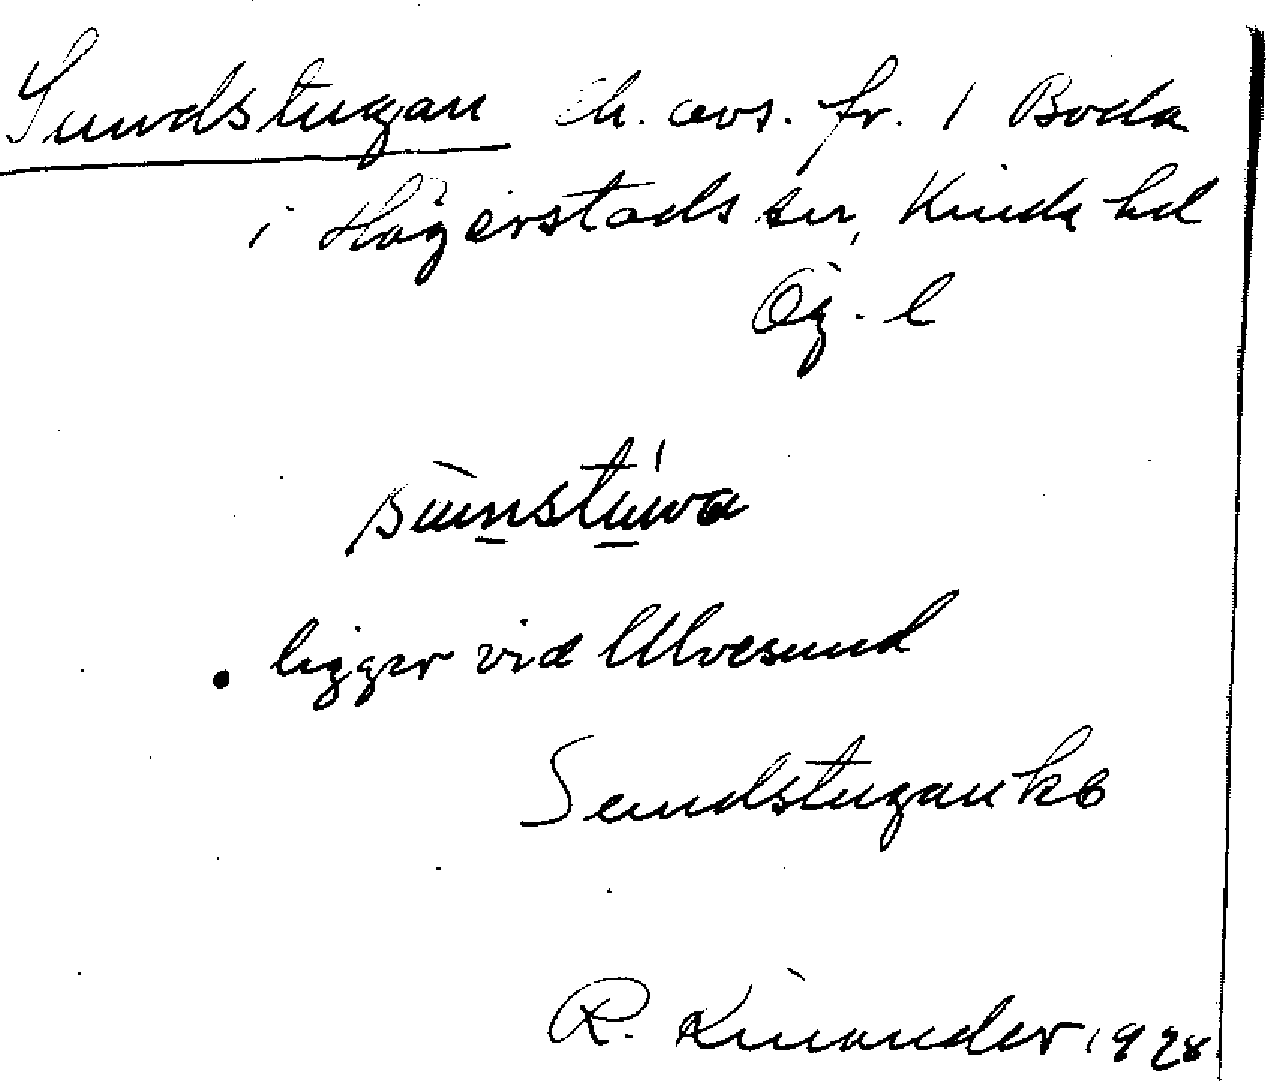 Sundstugan lh. avs. fr. 1 Boda
i Hägerstads sn, Kinda hd
Ög. l
sùnstúwa
ligger vid Ulvesund
Sundstugan kb
R. Kinander 1928